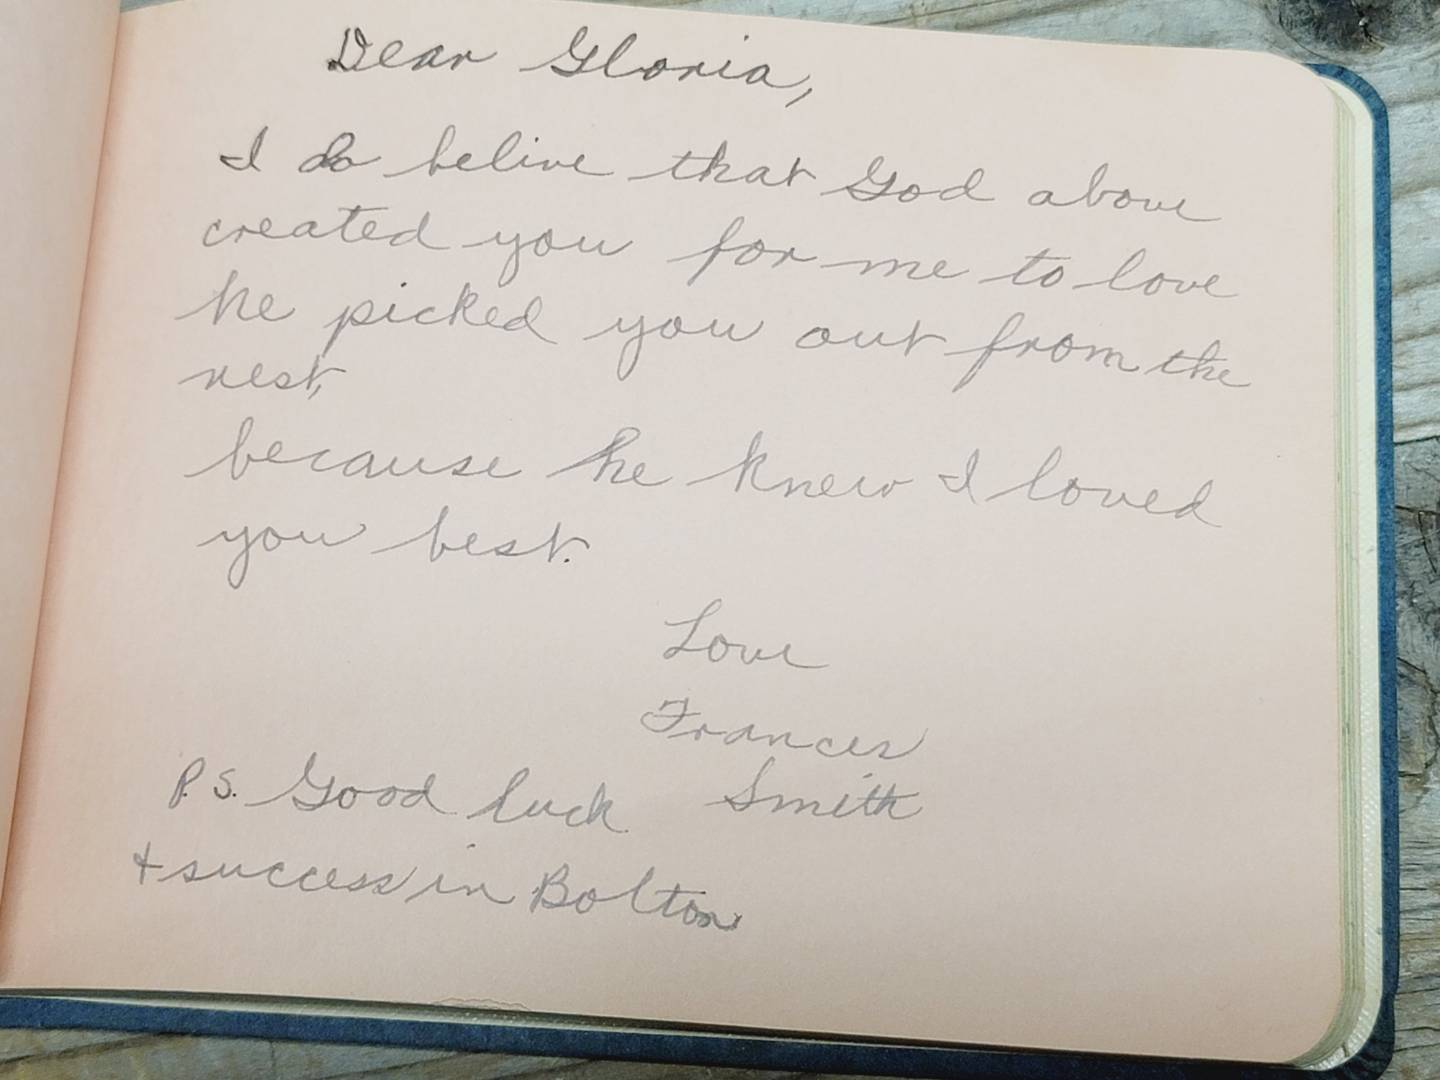 Dear Gloria,
I do belive that God above
created you for me to love
he picked you out from the
rest,
because he knew I loved
you best.
Love
Frances
Smith
P.S. Good luck
+ success in Bolton